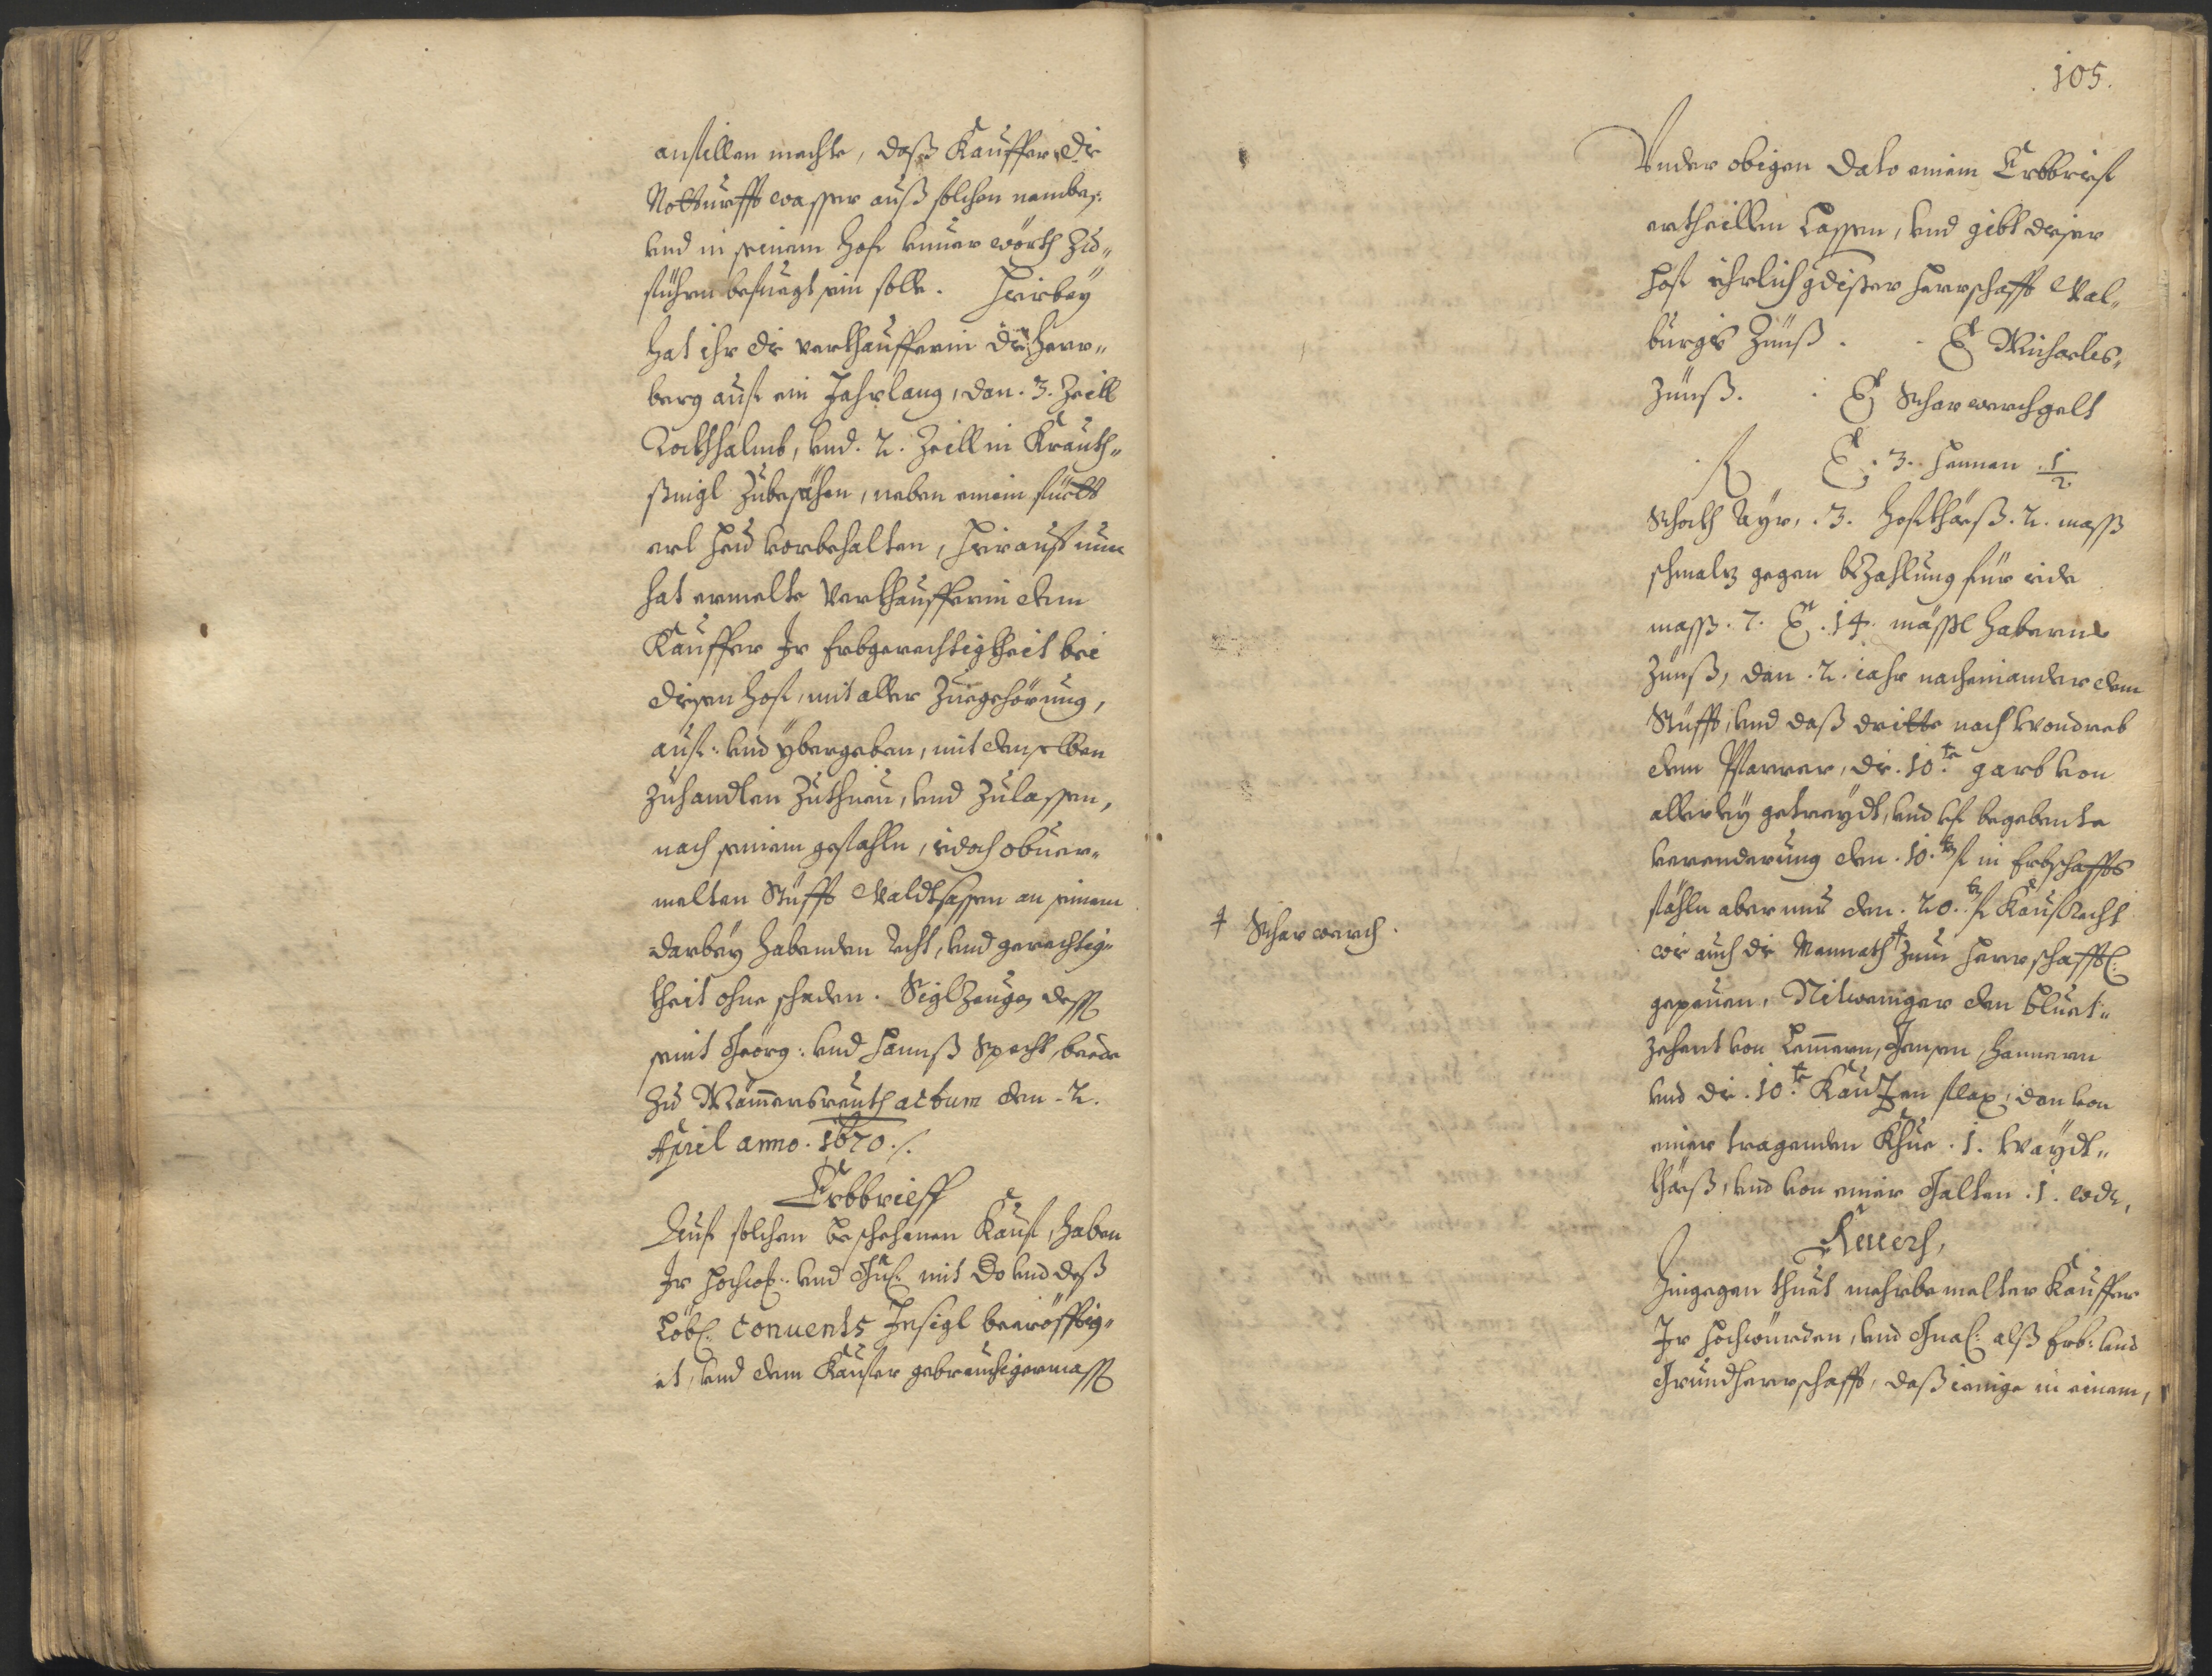 anstellen mechte, daß Kauffer die
Notturfft wasser auß solchen nemben
vnd in seinem Hof vnuerwörth zu„
führen befuegt sein solle. Hierbey
hat ihr die verkhaufferin die Herr„
berg auf ein Jahrlang, dan. 3. Zeill
vnd. 2. Zeill in Krauth„
zubesähen, neben einem
erl Heu vorbehalten, Hierauf nun
hat ermelte Verkhaufferin dem
Kauffer Ir Erbgerechtigkheit bei
diesen Hof, mit aller Zuegehörung,
auf: vnd ybergeben, mit demselben
zuhandlen zuthuen, vnd zulassen,
nach seinem gefahln, iedoch obuer„
melten Stüfft Waldtsassen an seinem
darbey habenden Recht, vnd gerechtig„
kheit ohne schaden. Siglzeugen dess
seint Georg: vnd Hannß Specht, beede
zu Mämersreuth actum den. 2.
April anno. 1670 ./.
Erbbrieff
Auf solchen beschehenen Kauf, haben
Ir Hochw: vnd Gn: mit Do vnd deß
Löbl: Conuents Insigl becröfftig„
et, vnd dem Kaufer gebreuchigermass
105.
Vnder obigen Dato einem Erbbrief
ertheillen Lassen, vnd gibt dieser
Hof ihrlich gdister Herrschafft Wal„
burgis Zünß . . Michaelis„
Zünß. . Scharwerchgelt
. 3. Hennen 1/2
Schockh Ayr, . 3. Hofkhäß. 2. mass
schmalz gegen bezahlung für iede
mass. 7. . 14. mässl Haberns
Zünß, dan. 2. iahr nacheinander dem
Stüfft, vnd daß dritte nach Wondreb
dem Pfarrer, die. 10.te garb von
allerley getreydt, vnd vf begebente
verenderung den. 10.ten f in Erbschaffts
fähln aber nur den. 20.ten f Kaufrecht
wie auch die Mannath ‡ zum Herrschafftl:
gepeuen, Nitweniger den bluet„
zehent von Lemern, Gensen Hennern
vnd die. 10.te Kautzen flax, dan von
einer tragenden Khue. 1. Waydt„
khäß, vnd von einer Galten. 1. ode,
‡ Scharwerch.
Reuers,
Hingegen thuet mehrbemelter Kauffer
Ir Hochwürden, vnd Gnad: alß Erb: vnd
Grundherrschafft, deßienige in einem,